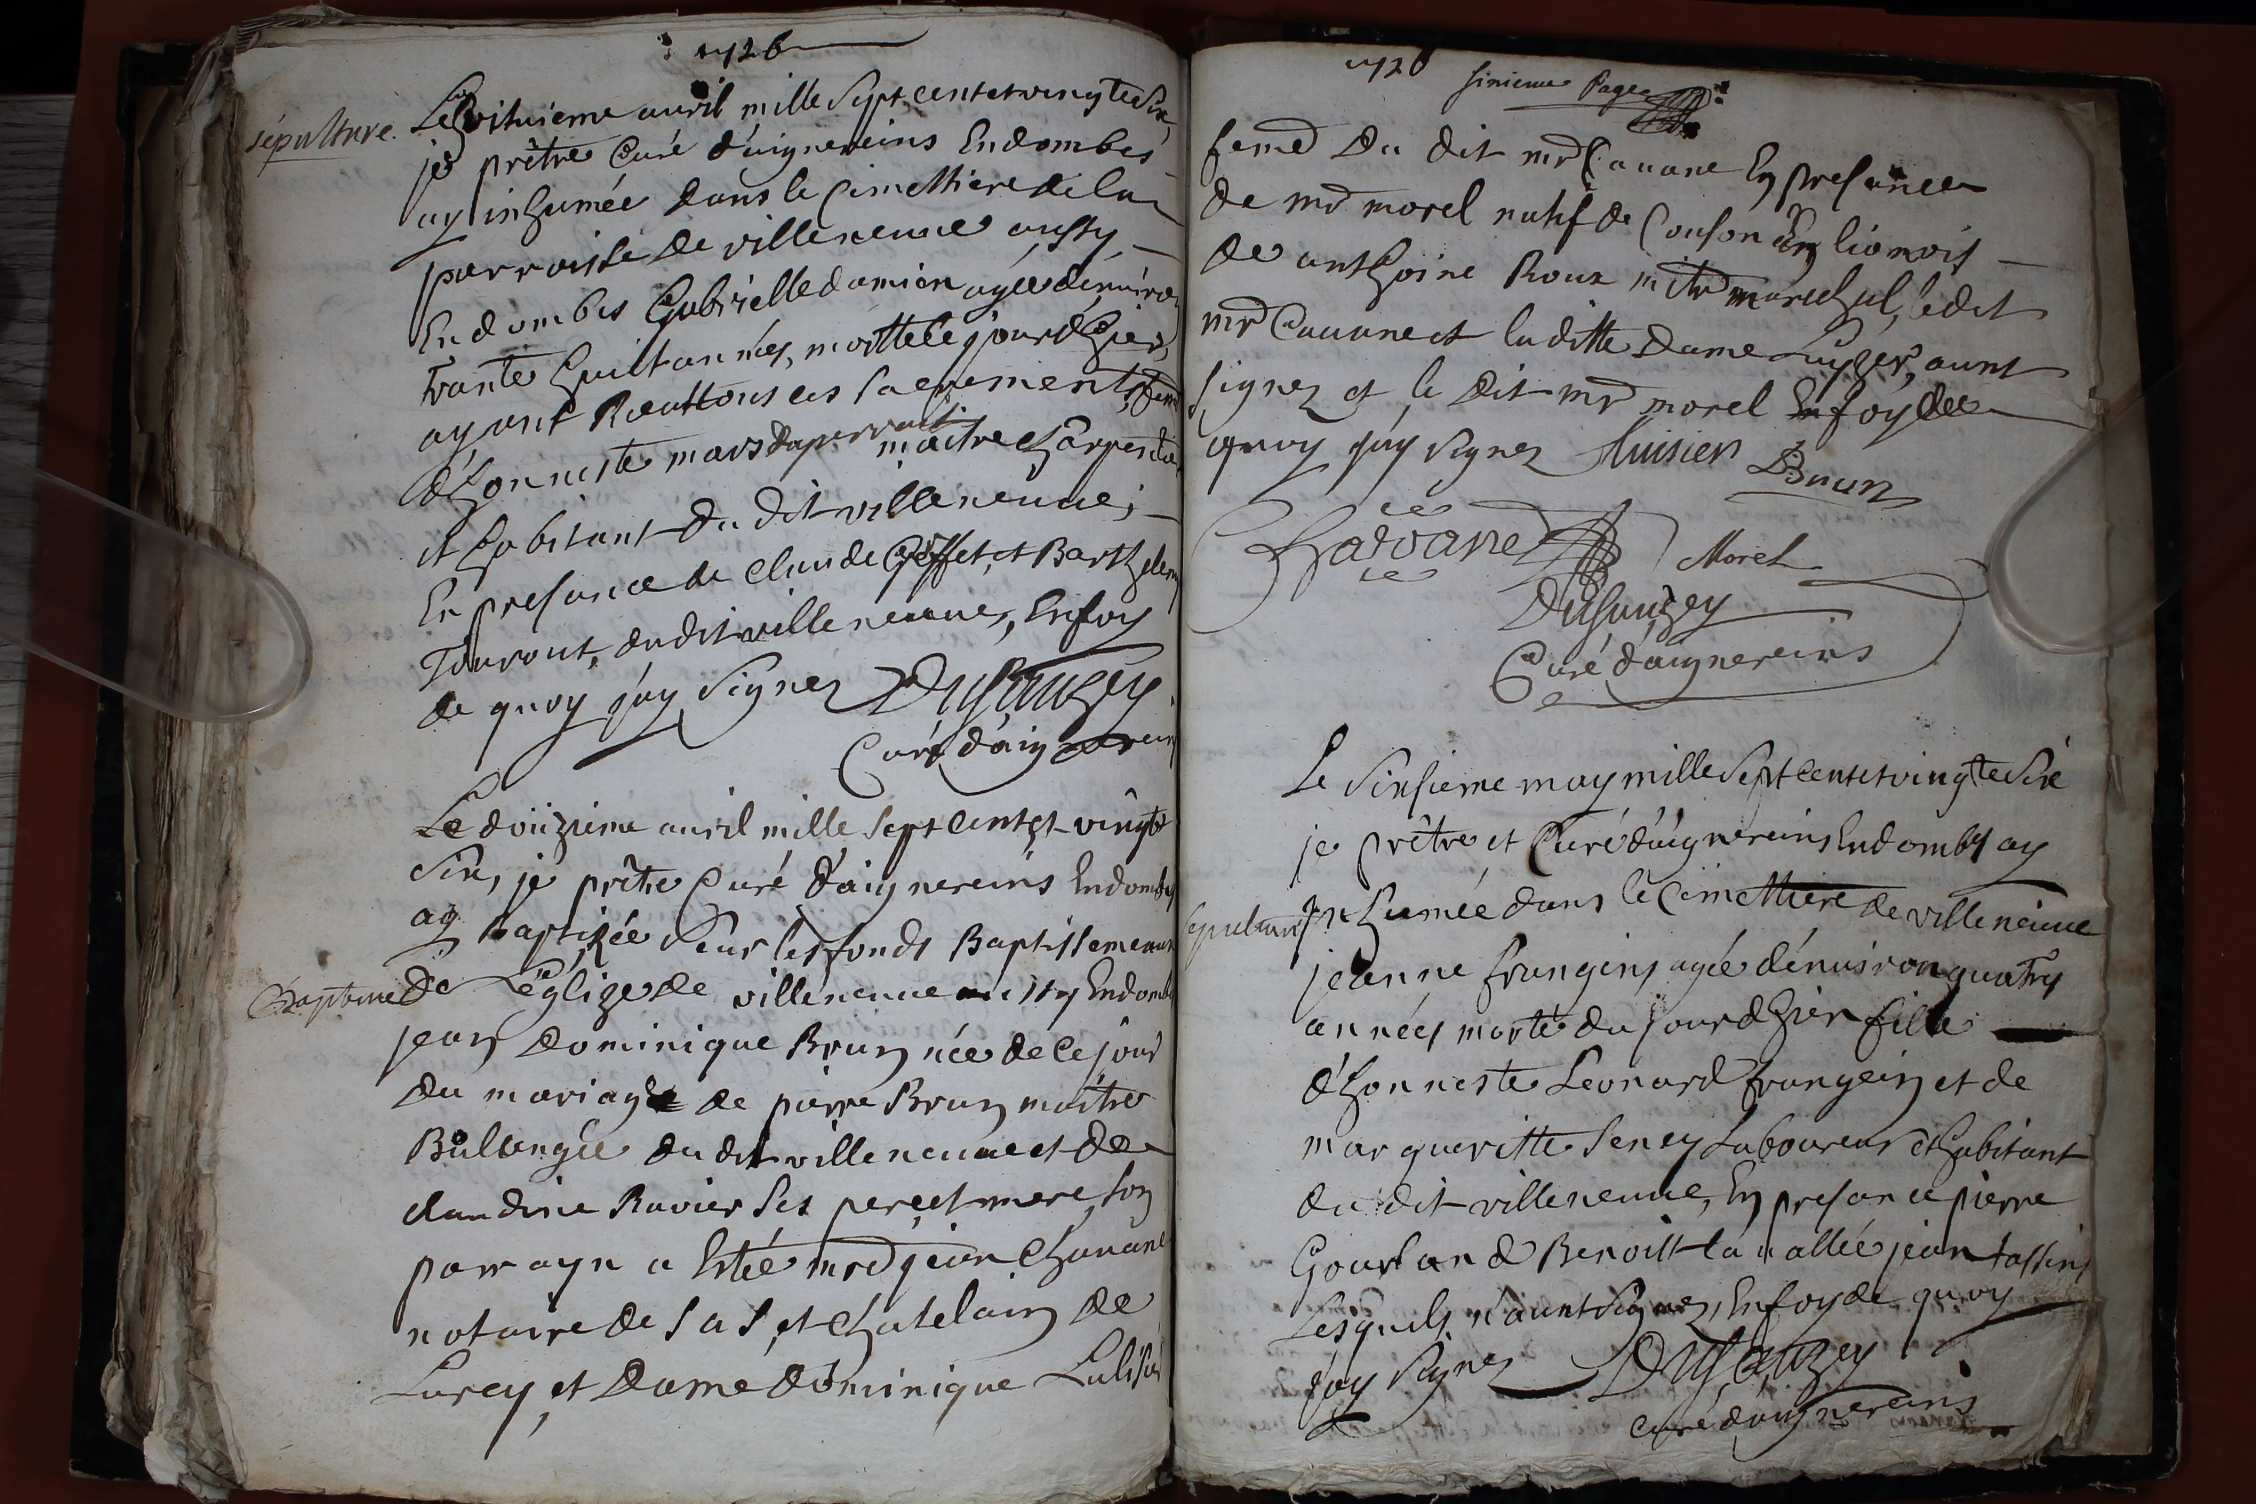 1726
sépulture.
Le huituieme auril mille Sept cent et vingt e Six,
je prêtre Curé d'aignereins En dombes
ay inhumée dans le Cimettiere de la
parroisse de villeneuue aussy
En dombes Gabrielle damien agée dénuiron
trante huit années, mortte le jour d'hier,
ayant Receu ttous les Sacrements, feme
d'honneste mars daperrault maitre charpentier
et habitant du dit villeneuue;
En presance de claude et Barthelemy
dudit villeneuue, En foy
de quoy j'ay Signez Dusauzey
Curé d'aignereins
Baptême
Le douzieme auril mille Sept cent et vingt e
Six, je prêtre Curé d'aignereins En dombes
ay baptizée Seur les fonds Baptissemeaux
de L'églize de villeneuue aussy En dombes
jean Dominique Brun née de Ce jour
du mariage de pierre Brun maitre
Bullangée du dit villeneuue et de
claudine Ravier Ses pere et mere, Son
parrayn a Estée mrd jean Chauane
notaire de S A S, et Chatelain de
Lurcy, et Dame dominique
1726 Sixieme Page
feme Du dit mrd Cauane En presance
de mrd morel natif de Couson En lionois
de anthoine Roux mtre marechal, le dit
mrd Cauane et laditte Dame aunt
Signez et le dit mrd morel En foy de
quoy j'ay Signez Brun
Chavane Morel
Dusauzey
Curé d'aignereins
Sepulture
Le Sixsieme may mille Sept cent et vingt e Six
je prêtre et Curé d'aignereins En dombes ay
inhumée dans le Cimettiere de villeneuue
jeanne frangeins agée dénuiron quatres
années morte du jour d'hier fille
d'honneste Leonard frangein et de
margueritte Seney Laboureur et habitant
du dit villeneuue, En presance pierre
Gourland Benoist la uallée jean tassins
Lesquels n'aunt Signez, En foy de quoy
j'ay Signez Dusauzey
curé d'aignereins